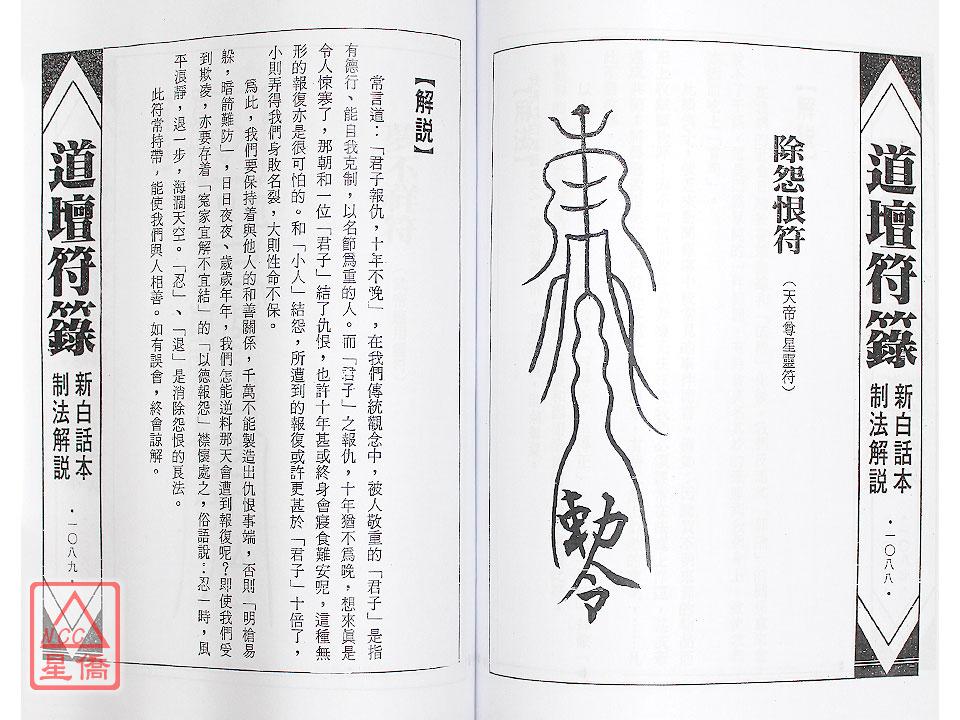 道壇符籙
新白話本
制法解説
·一〇八八·
除怨恨符
(天帝尊星靈符)
勅令
【解説】
常言道:「君子報仇,十年不晚」,在我們傳統觀念中,被人敬重的「君子」是指
有德行、能自我克制,以名節爲重的人。而「君子」之報仇,十年猶不爲晚,想來眞是
令人悚寒了,那朝和一位「君子」結了仇恨,也許十年甚或終身會寢食難安呢,這種無
形的報復亦是很可怕的。和「小人」結怨,所遭到的報復或許更甚於「君子」十倍了,
小則弄得我們身敗名裂,大則性命不保。
爲此,我們要保持着與他人的和善關係,千萬不能製造出仇恨事端,否則「明槍易
躱,暗箭難防」,日日夜夜、歲歲年年,我們怎能逆料那天會遭到報復呢?即使我們受
到欺凌,亦要存着「寃家宜解不宜結」的「以德報怨」襟懷處之,俗語說:忍一時,風
平浪靜,退一步,海濶天空。「忍」、「退」是消除怨恨的良法。
此符常持帶,能使我們與人相善。如有誤會,終會諒解。
道壇符籙
新白話本
制法解説
·一〇八九·
NCC
星僑